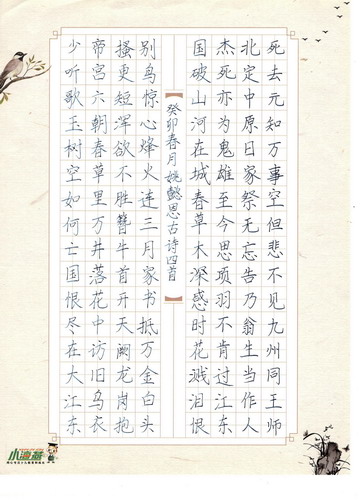 死去元知万事空但悲不见九州同王师
北定中原日家祭无忘告乃翁生当作人
杰死亦为鬼雄至今思项羽不肯过江东
国破山河在城春草木深感时花溅泪恨
【癸卯春月姚懿思古诗四首】
别鸟惊心烽火连三月家书抵万金白头
搔更短浑欲不胜簪牛首开天阙龙岗抱
帝宫六朝春草里万井落花中访旧乌衣
少听歌玉树空如何亡国恨尽在大江东